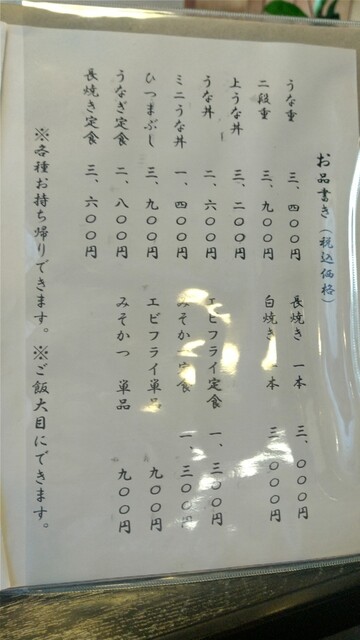 お品書き(税込価格)
うな重 三、四〇〇円
二段重 三、九〇〇円
上うな丼 三、二〇〇円
うな丼 二、六〇〇円
ミニうな丼 一、四〇〇円
ひつまぶし 三、九〇〇円
うなぎ定食 二、八〇〇円
長焼き定食 三、六〇〇円
長焼き 一本 三、〇〇〇円
白焼き 一本 三、〇〇〇円
エビフライ定食 一、三〇〇円
みそかつ定食 一、三〇〇円
エビフライ単品 九〇〇円
みそかつ 単品 九〇〇円
※各種お持ち帰りできます。※ご飯大目にできます。